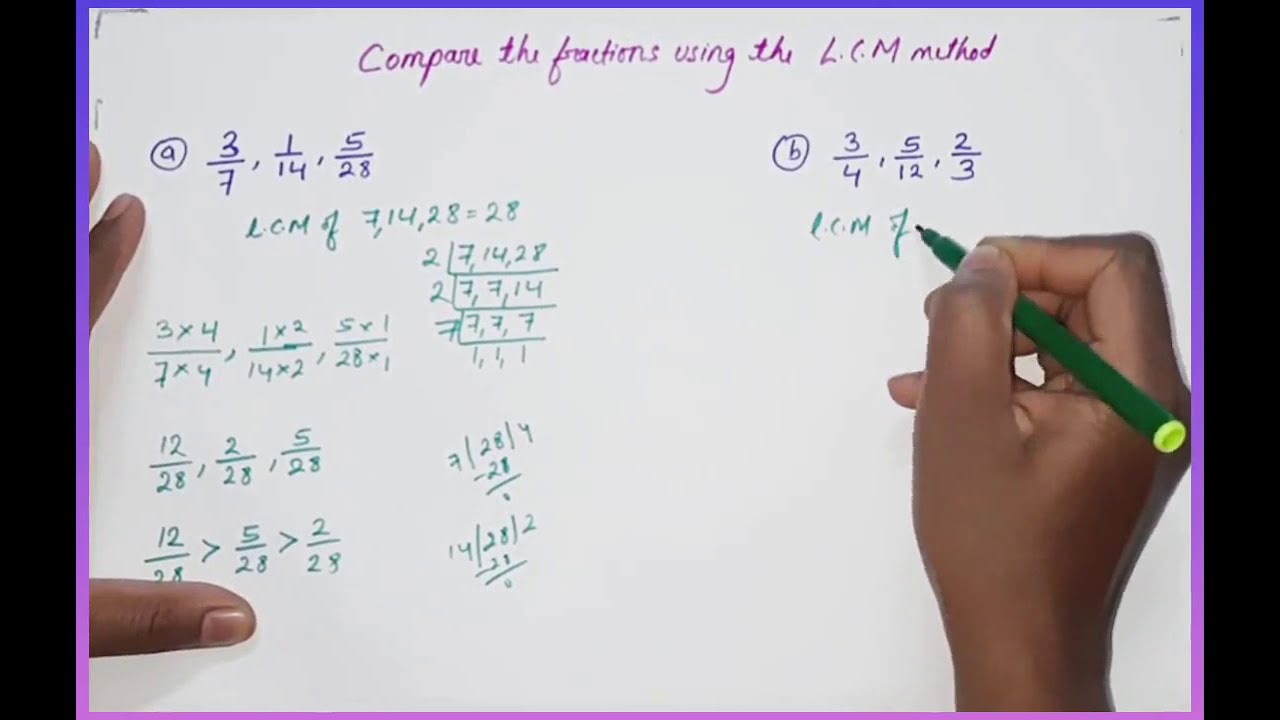 Compare the fractions using the L.C.M method
(a) 3/7, 1/14, 5/28
L.C.M of 7,14,28=28
2 | 7,14,28
2 | 7,7,14
7 | 7,7,7
1,1,1
3×4/7×4, 1×2/14×2, 5×1/28×1
12/28, 2/28, 5/28
7 | 28 | 4
-28
0
12/28 > 5/28 > 2/28
14 | 28 | 2
28
0
(b) 3/4, 5/12, 2/3
L.C.M of